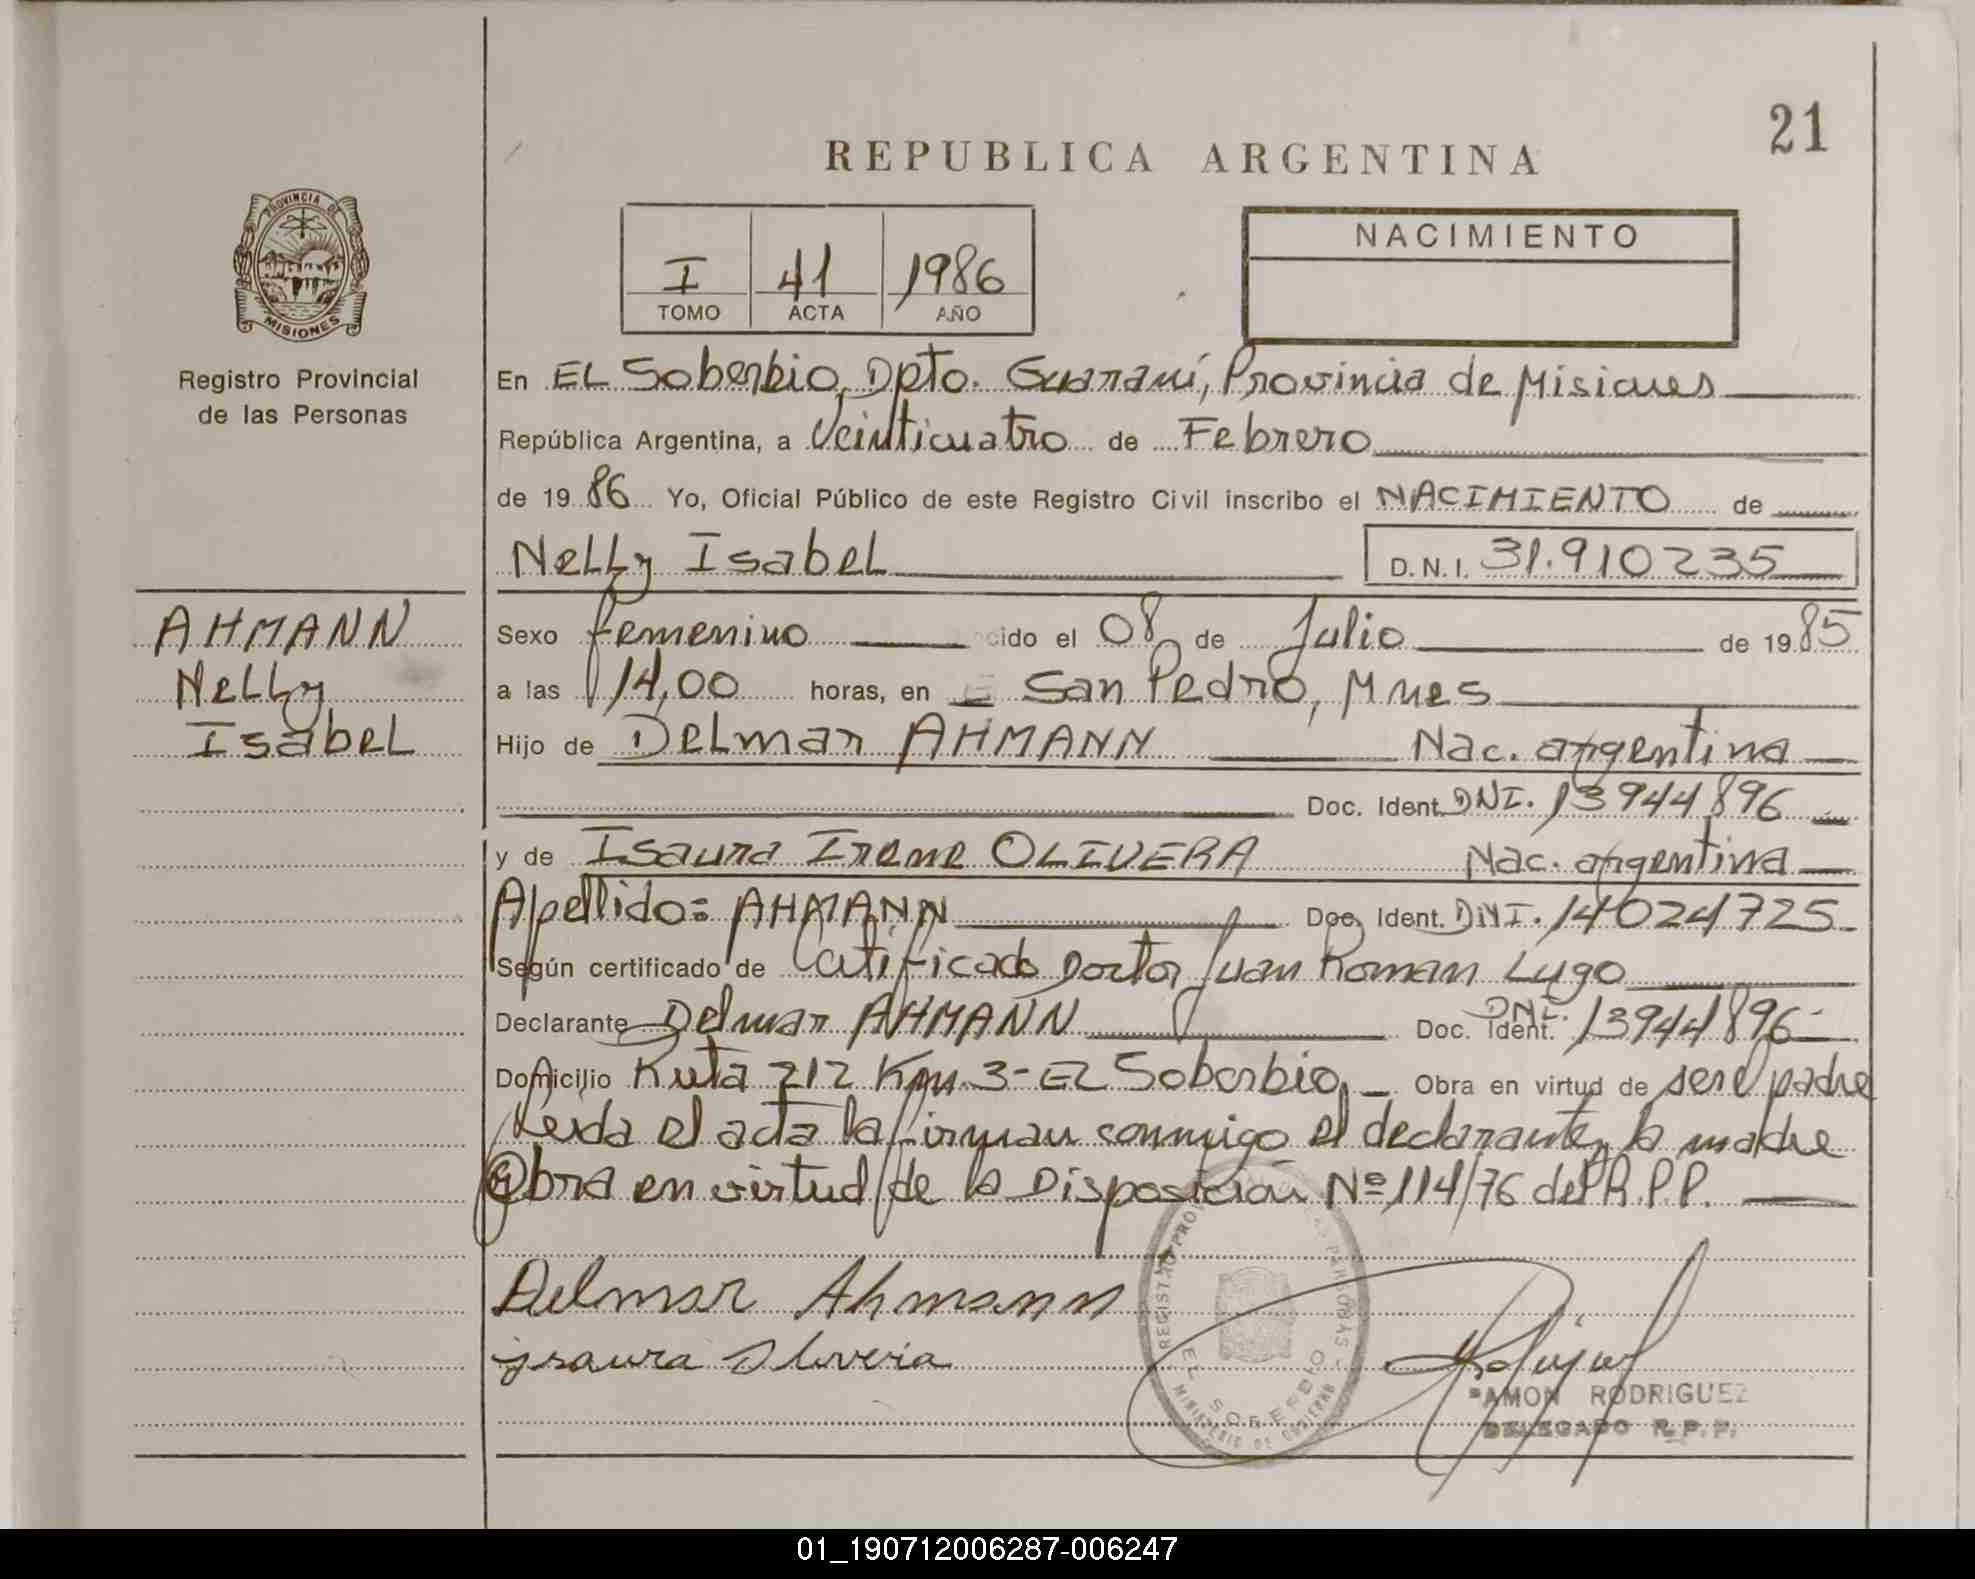 21
REPUBLICA ARGENTINA
PROVINCIA DE
MISIONES
Registro Provincial
de las Personas
I 41 1986
TOMO ACTA AÑO
NACIMIENTO
En EL Soberbio, Dpto. Guaraní, Provincia de Misiones
República Argentina, a Veinticuatro de Febrero
de 19 86 Yo, Oficial Público de este Registro Civil inscribo el NACIMIENTO de
Nelly Isabel D.N.I. 31.910235
AHMANN
Nelly
Isabel
Sexo femenino cido el 08 de Julio de 1985
a las 14,00 horas, en San Pedro, Mnes
Hijo de Delmar AHMANN Nac. argentina
Doc. Ident. DNI. 13944896
y de Isaura Irene OLIVERA Nac. argentina
Apellido: AHMANN Doc. Ident. DNI. 14024725
Según certificado de Certificado Doctor Juan Roman Lugo
Declarante Delmar AHMANN Doc. Ident. DNI. 13944896
Domicilio Ruta 212 Km. 3- EL Soberbio, Obra en virtud de ser el padre
Leida el acta la firman conmigo el declarante y la madre
Obra en virtud de la Disposición Nº 114/76 del R.P.P.
Delmar Ahmann
isaura Olivera
REGISTRO PROV
EL SOBERBIO
MINISTERIO DE GOBIERNO
RAMON RODRIGUEZ
DELEGADO R.P.P.
01_190712006287-006247